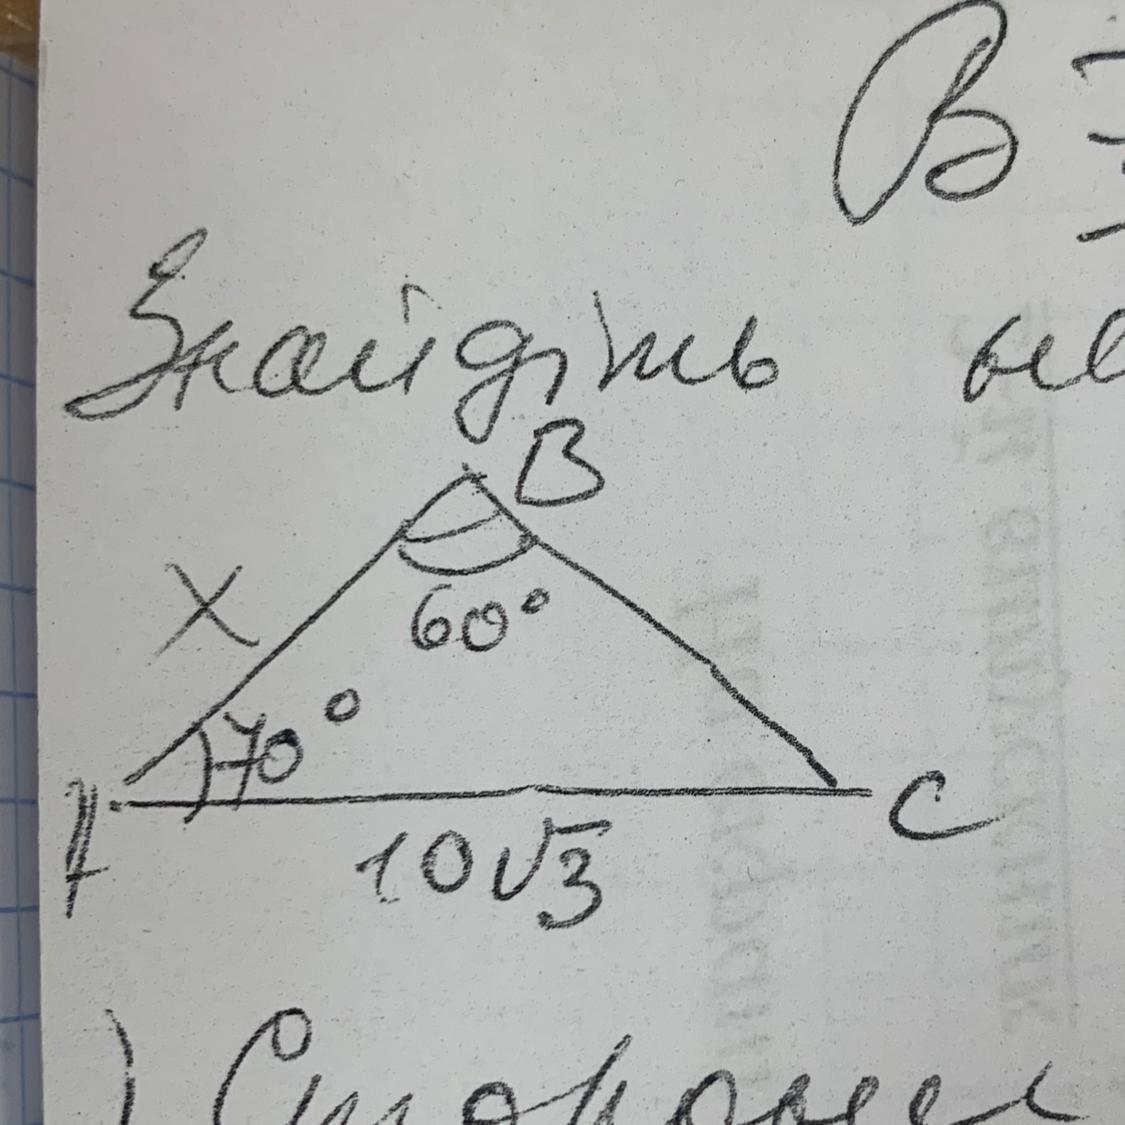 В
Знайдіть
B
X
60°
70°
A
C
10√3
) Сторони